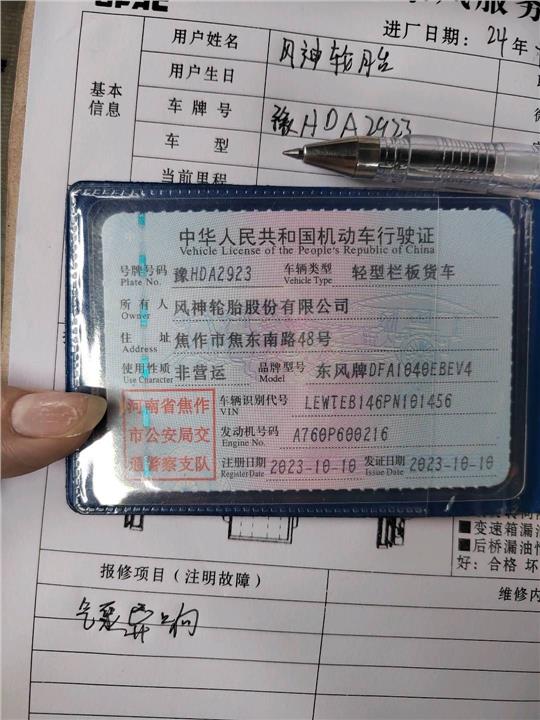 进厂日期: 24年
用户姓名 风神轮胎
用户生日
基本信息
车牌号 豫HDA2923
车 型
当前里程
中华人民共和国机动车行驶证
Vehicle License of the People's Republic of China
号牌号码 豫HDA2923 车辆类型 轻型栏板货车
Plate No. Vehicle Type
所有人 风神轮胎股份有限公司
Owner
住 址 焦作市焦东南路48号
Address
使用性质 非营运 品牌型号 东风牌DFA1040EBEV4
Use Character Model
河南省焦作
市公安局交
通警察支队
车辆识别代号 LEWTEB146PN101456
VIN
发动机号码 A760P600216
Engine No.
注册日期 2023-10-10 发证日期 2023-10-10
Register Date Issue Date
■变速箱漏
■后桥漏油
好：合格 坏
报修项目（注明故障） 维修内